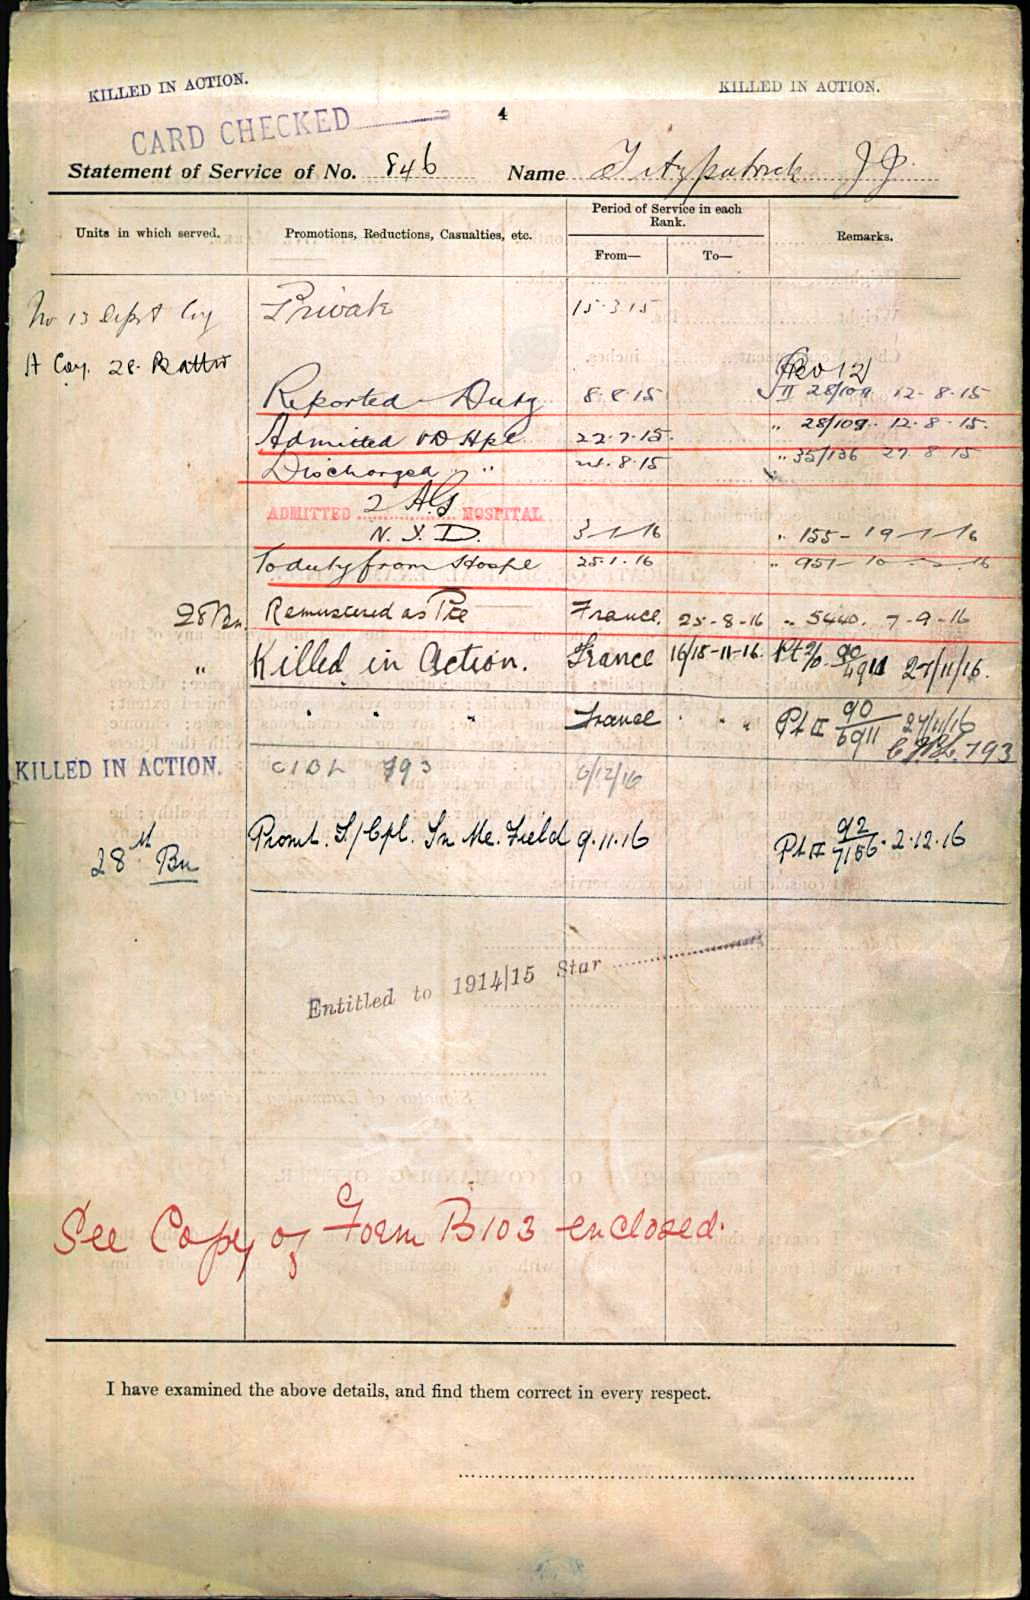 KILLED IN ACTION.
KILLED IN ACTION.
CARD CHECKED
4
Statement of Service of No. 846 Name Fitzpatrick J J
Units in which served.
Promotions, Reductions, Casualties, etc.
Period of Service in each Rank.
From—
To—
Remarks.
No 13 Depot Coy Private 15-3-15
A Coy. 28. Battn
Reported Duty 8-8-15 II 28/109 12-8-15
Admitted VD Hpl 22-7-15. " 28/109. 12-8-15.
Discharged " " 8-15 " 35/136 27-8-15
ADMITTED 2 AG HOSPITAL
N.Y.D. 3-1-16 " 155-19-1-16
To duty from Hospl 25-1-16 " 951-10-2-16
28 Bn. Remustered as Pte France. 25-8-16 " 5440. 7-9-16
" Killed in Action. France 16/18-11-16. 27/11/16.
" " " France " " " Pt II 90/6911 27/11/16
KILLED IN ACTION. 793 6/12/16 793
28th Bn Promt. L/Cpl. In the Field 9.11.16 Pt II 92/7156. 2.12.16
Entitled to 1914/15 Star
See Copy of Form B103 enclosed.
I have examined the above details, and find them correct in every respect.